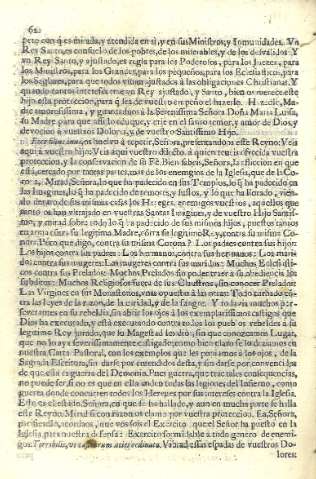 62
pero con q es mirada, y atendida en sì, y en sus Ministros, y Inmunidades. Vn
Rey Santo, es consuelo de los pobres, de los miserables, y de los desvalidos. Y
vn Rey Santo, y ajustado, es regla para los Poderosos, para los Juezes, para
los Ministros, para los Grandes, para los pequeños, para los Eclesiasticos, para
los Seglares, para que todos vivan ajustados à las obligaciones Christianas. Y
quando tantos intereses trae vn Rey ajustado, y Santo, bien os merece este
hijo esta proteccion, para q les de vuestro empeño el hazerlo. Hazedlo, Ma-
dre amorosissima, y guardadnos à la Serenissima Señora Doña Maria Luisa,
su Madre para que assi lo eduque, y crie en el santo temor, y amor de Dios, y
devocion à vuestros Dolores, y de vuestro Santissimo Hijo.
os inclina à repetir, Señora, presentandoos este Reyno. Veis
aqui, à vuestro hijo: Veis aqui vuestro aquien teneis ofrecida vuestra
proteccion, y la conservacion de su Fè. Bien sabeis, Señora, la afliccion en que
està, cercado por tantas partes, mas de los enemigos de la Iglesia, que de la Co-
rona. Mirad, Señora, lo que ha padecido en sus Templos, lo q ha padecido en
las Imagines, lo q ha padecido de truenos, y sustos, y lo que ha llorado, vien-
do dentro de sus mismas casas los Hereges, enemigos vuestros, aquellos que
tanto os han vltrajado en vuestras Santas Imagines, y de vuestro Hijo Santissi-
mo, y mirad sobre todo lo q ha padecido de sus mismos hijos, puestos tantos
en arma contra su legitima Madre, contra su legitimo Rey, contra su misma Co-
rona. Pero que digo, contra su misma Corona? Los padres contra sus hijos:
Los hijos contra sus padres: Los hermanos, contra sus hermanos: Los mari-
dos contra sus mugeres: Las mugeres contra sus maridos: Muchos Eclesiasti-
cos contra sus Prelados: Muchos Prelados sin poder traer à su obediencia los
subditos: Muchos Religiosos fuera de sus Claustros, sin conocer Prelados:
Las Virgenes en sus Monasterios, vnas opuestas à las otras: Todo turbado con-
tra las leyes de la razon, de la caridad, y de la sangre. Y todavia muchos per-
severantes en su rebeldia, sin abrir los ojos à los exemplarissimos castigos que
Dios ha executado, y està executando contra todos los pueblos rebeldes à su
legitimo Rey jurado, que lo Magestad les diò, sin que conozcamos Lugar,
que no lo aya severissimamente castigado; como bien claro se lo deziamos en
nuestra Carta Pastoral, con los exemplos que les poniamos à los ojos, de la
Sagrada Escritura, sin darse por entendidos desta, y sin darse por convencidos
de que esta es guerra del Demonio. Pues guerra, que trae tales consequencias,
no puede ser, si no es que en ella anden todas las legiones del Infierno, como
guerra donde concurren todos los Hereges por sus intereses contra la Iglesia.
Este es el estado, Señora, en que se ha hallado, y aun en mucha parte se halla
este Reyno. Mirad si con razon os clamo por vuestra proteccion. Ea, Señora,
piedad os pido, acordaos, que vos sois el Exercito que el Señor ha puesto en la
Iglesia para nuestra defensa: Exercito formidable à todo genero de enemi-
gos. Terribilis, vt castrorum acies ordinata. Vibrad essas espadas de vuestros Do-
lores: